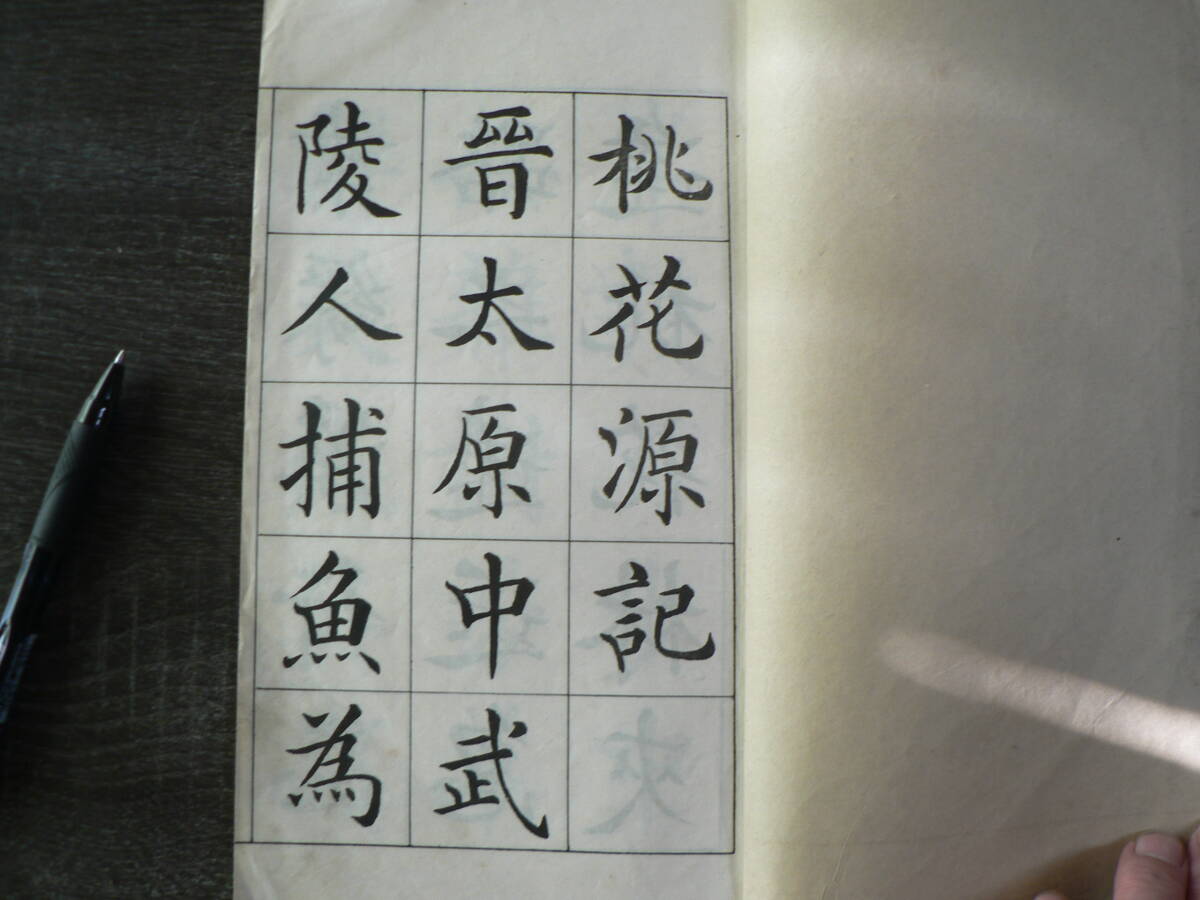 桃花源記
晉太原中武
陵人捕魚為